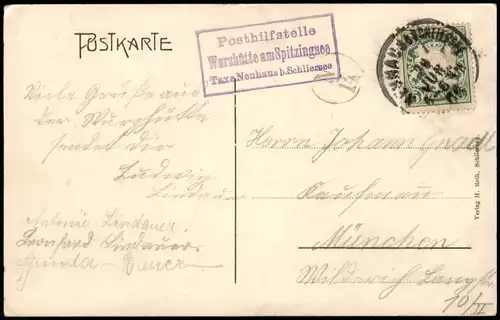 POSTKARTE
Posthilfstelle
Wurzhütte am Spitzingsee
Taxe Neuhaus b. Schliersee
Viele Grüße aus
der Wurzhütte
sendet dir
Ludwig
Lindauer
Antonie Lindauer
Leonhard Lindauer
Bauer
Herrn Johann
Kaufmann
München
Verlag H. Roth, Schliersee
10/II